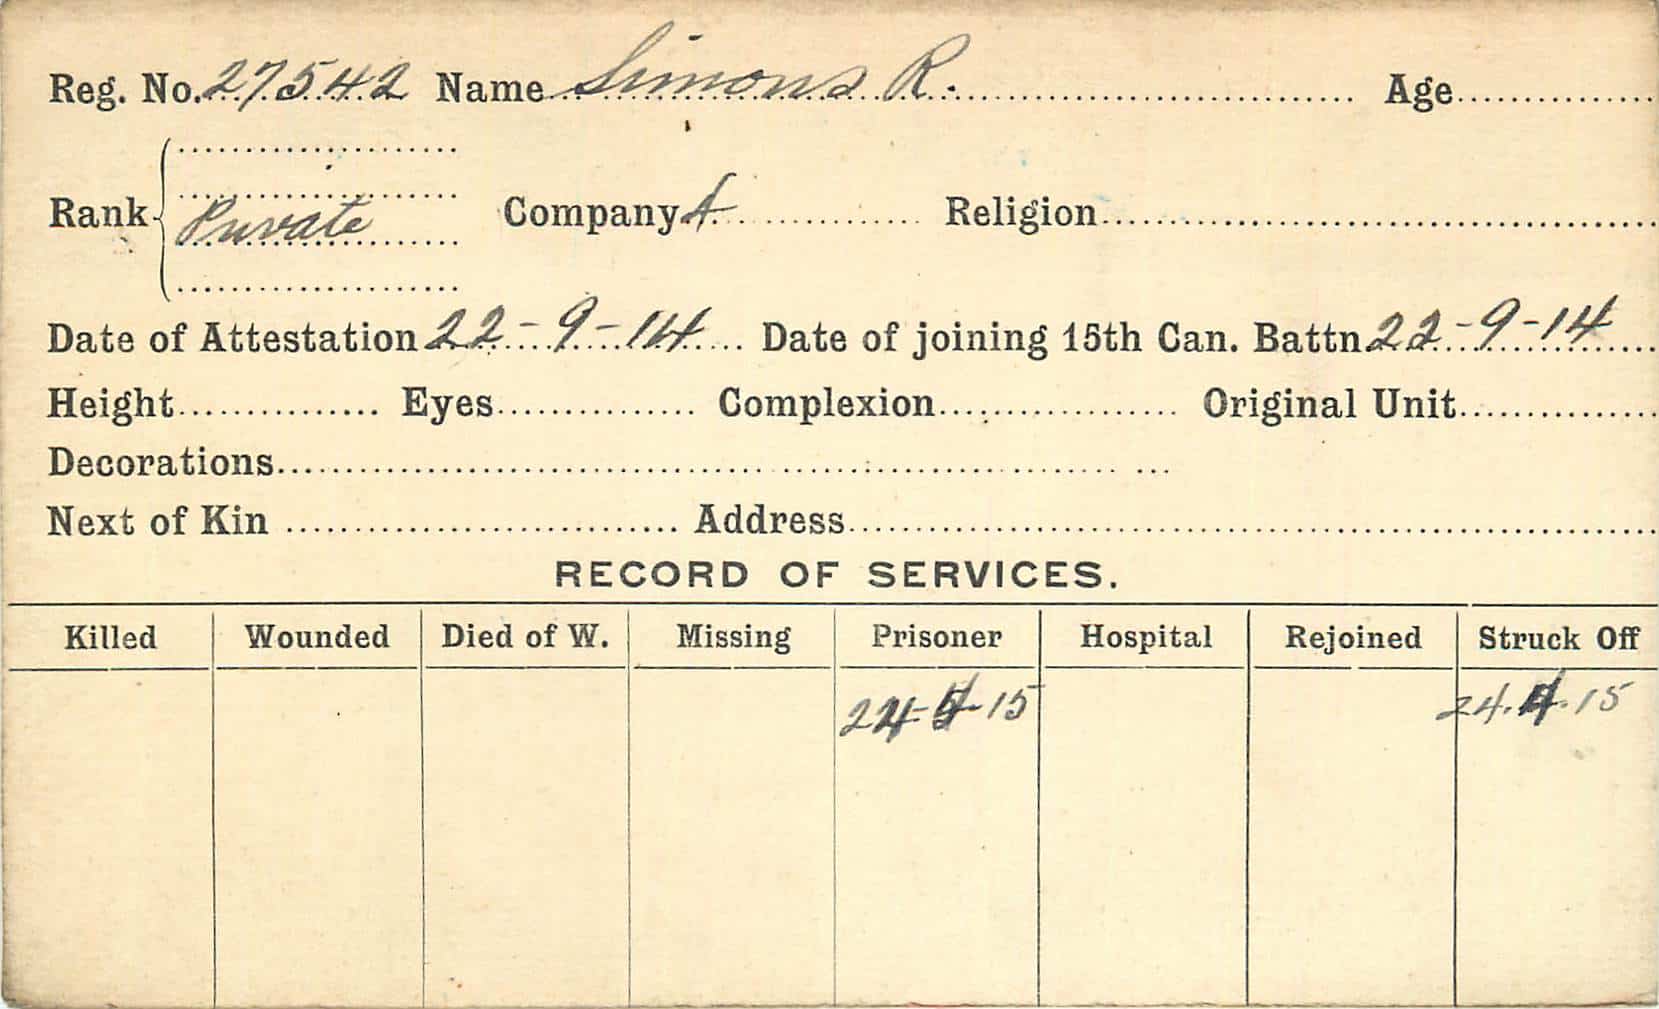 Reg. No. 27542 Name Simons R. Age
Rank Private Company A Religion
Date of Attestation 22-9-14 Date of joining 15th Can. Battn 22-9-14
Height Eyes Complexion Original Unit
Decorations
Next of Kin Address
RECORD OF SERVICES.
Killed Wounded Died of W. Missing Prisoner Hospital Rejoined Struck Off
24-4-15 24.4.15